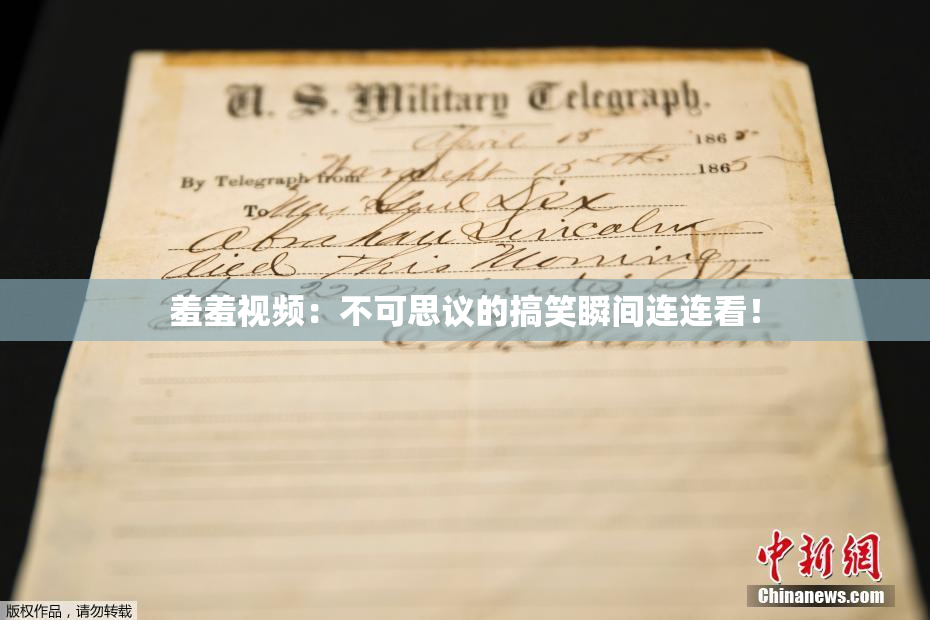 U. S. Military Telegraph.
April 15 1865
By Telegraph from War Dept 15th 1865
To Maj Genl Dix
Abraham Lincoln
died This Morning
at 22 minutes after
羞羞视频：不可思议的搞笑瞬间连连看！
E. M. Stanton
中新网
Chinanews.com
版权作品，请勿转载